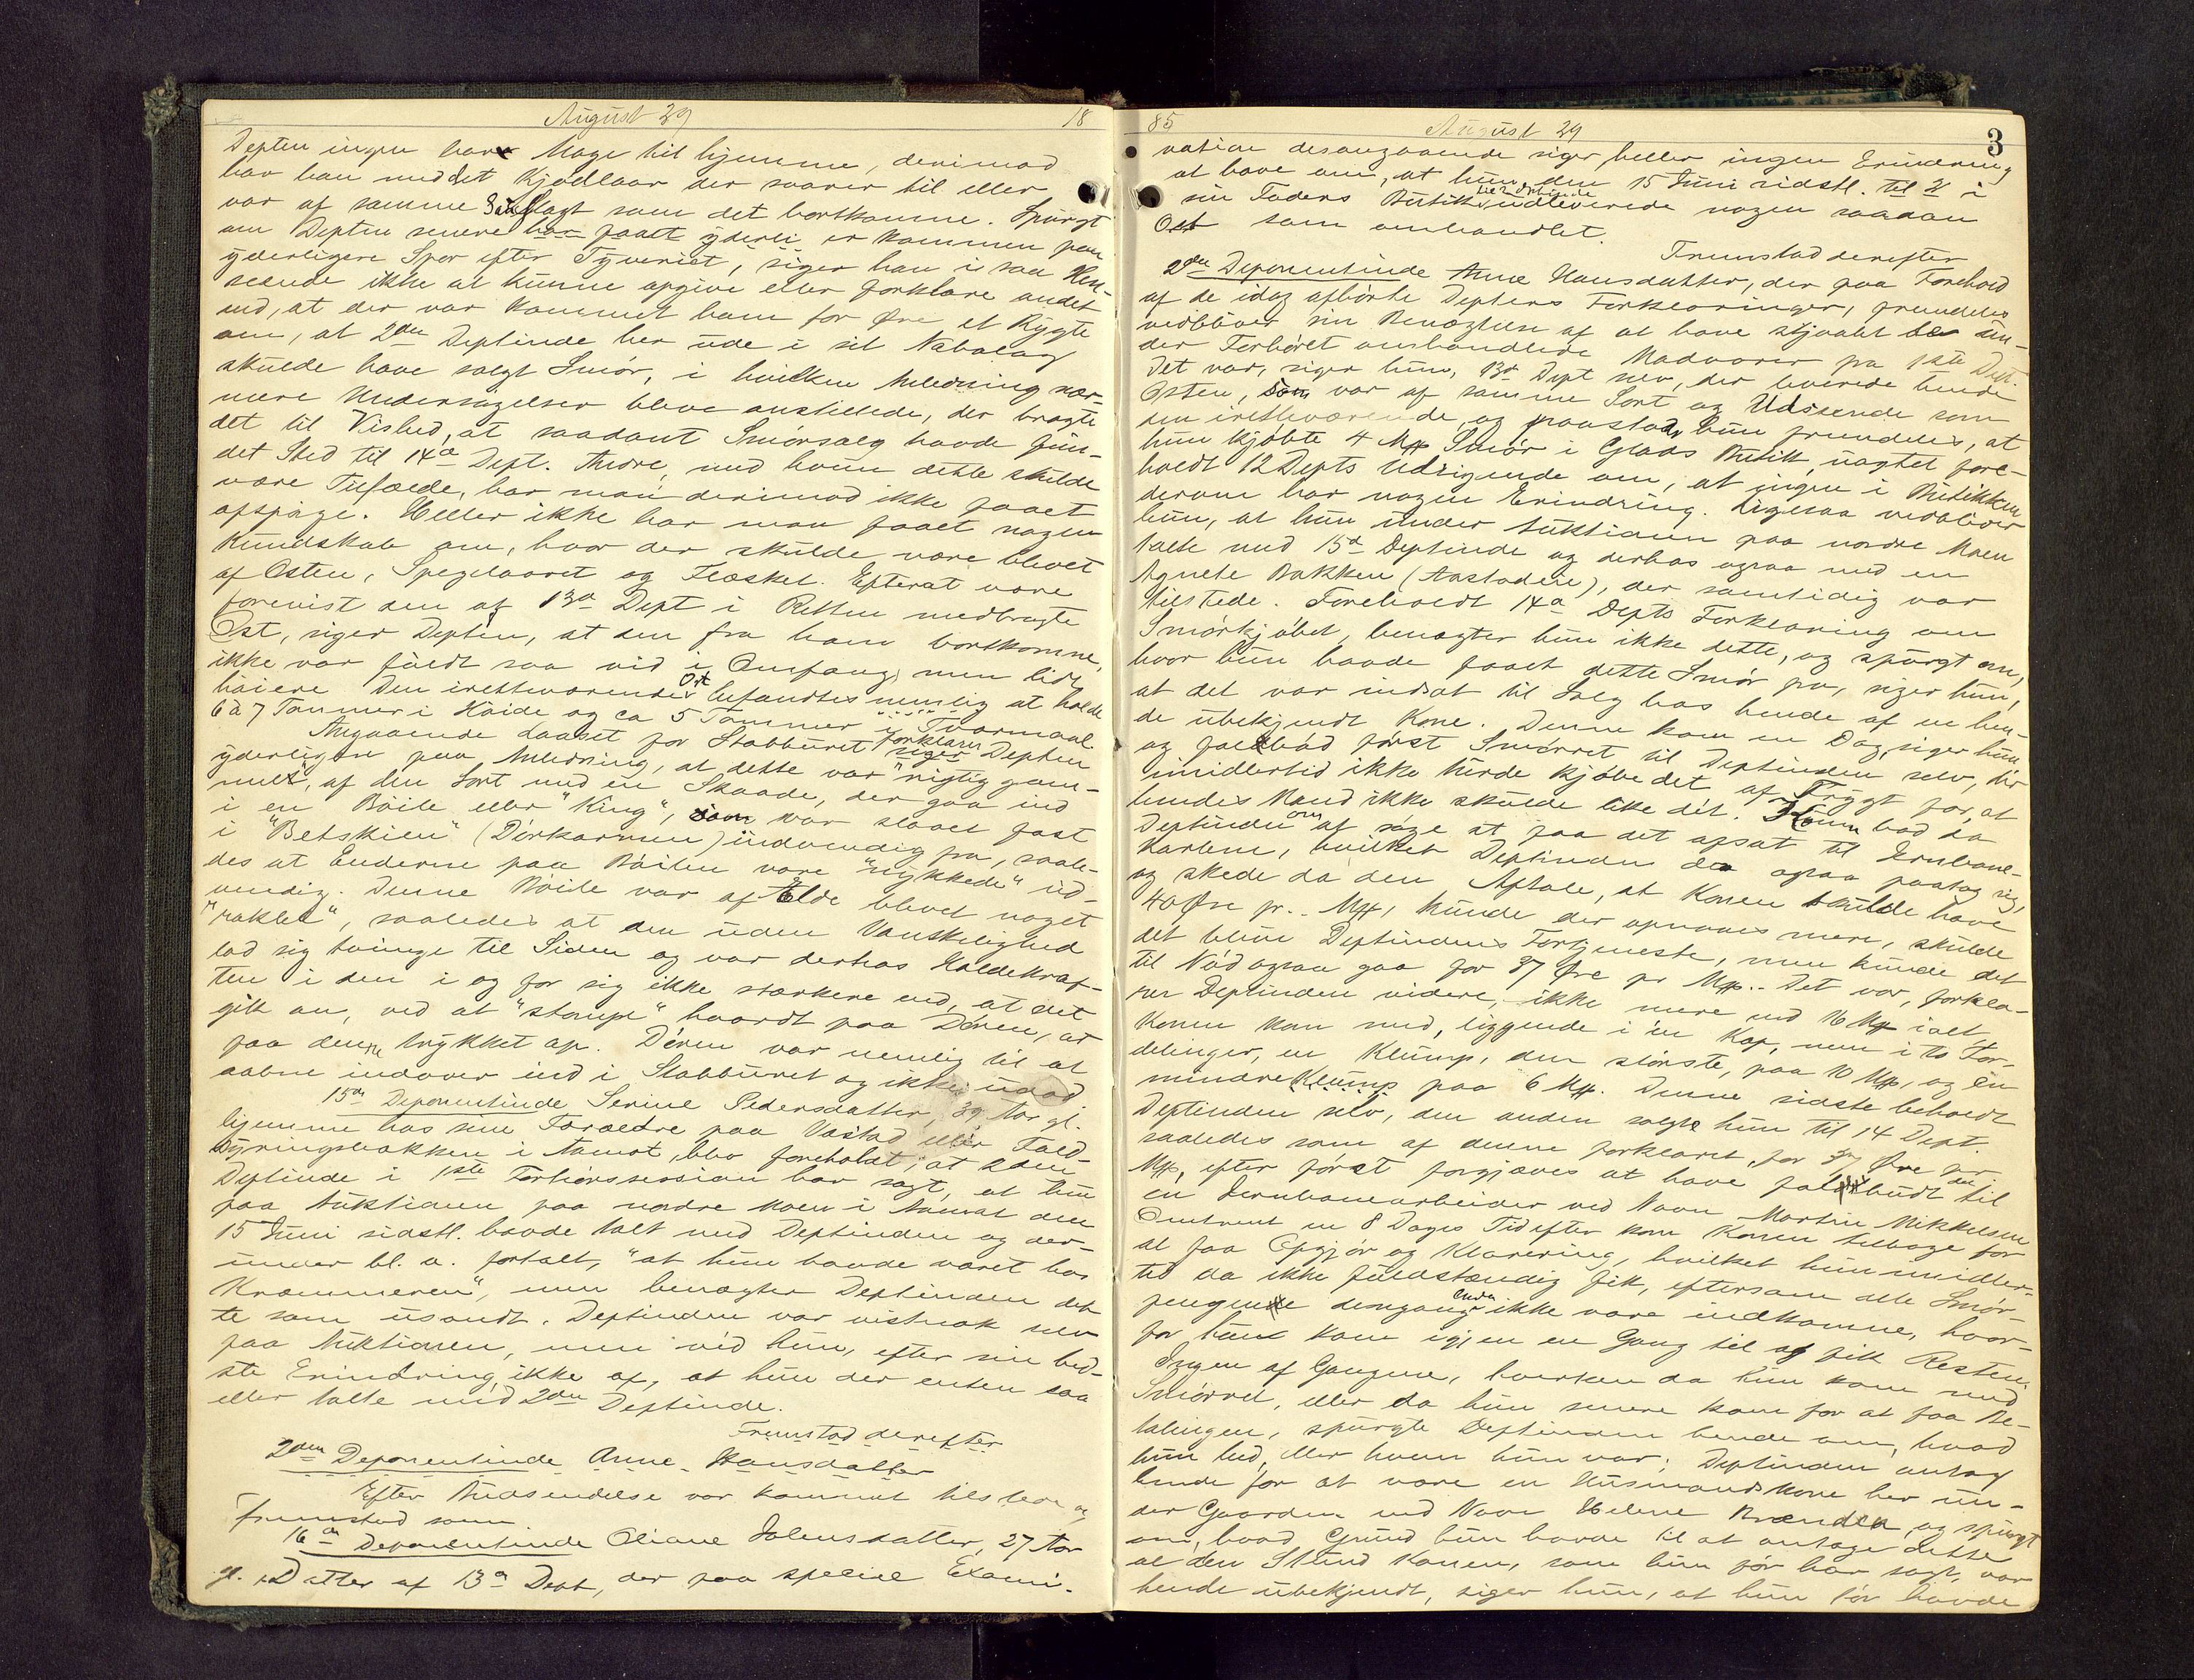 August 29 18
Depten ingen har Mage til hjemme, derimod
har han med et Kjødlaar der svarer til eller
var af samme Slagt som det bortkomne. Spurgt
om Depten senere har faaet yderli er kommen paa
yderligere Spor efter Tyveriet, siger han i saa Hen-
seende ikke at kunne opgive eller forklare andet
end, at der var kommet ham for Øre et Rygte
om, at 2den Deptinde her ude i sit Nabolag
skulde have solgt Smør, i hvilken Anledning nær-
mere Undersøgelser bleve anstillede, der bragte
det til Vished, at saadant Smørsalg havde fun-
det Sted til 14de Dept. Andre, med hvem dette skulde
være Tilfælde, har man derimod ikke faaet
opspurgt. Heller ikke har man faaet nogen
Kundskab om, hvor der skulde være blevet
af Osten, Spegelaaret og Flæsket. Efterat være
forevist den af 13de Dept i Retten medbragte
Ost, siger Depten, at den fra ham bortkomne,
ikke var fuldt saa vid i Omfang, men lidt
høiere. Den iretteværende Ost befandtes nemlig at holde
6 à 7 Tommer i Høide og ca 5 Tommer i Tvermaal.
Angaaende Laaset for Stabburet forklarer siger Depten
yderligere paa Anledning, at dette var "rigtig gam-
melt", af den Sort med en Skaade, der gaa ind
i en Bøile eller "King", som var slaaet fast
i "Betskien" (Dørkarmen) indvendig fra, saale-
des at Enderne paa Bøilen vare "nykkede" ud-
vendig. Denne Bøile var af Elde blevet noget
"raklet", saaledes at den uden Vanskelighed
lod sig tvinge til Siden og var derhos Holdekraf-
ten i den i og for sig ikke stærkere end, at det
gik an, ved at "stampe" haardt paa Døren, at
faa denne trykket op. Døren var nemlig til at
aabne indover ind i Stabburet og ikke udad
15de Deponentinde Serine Pedersdatter, 39 Aar gl.
hjemme hos sine Forældre paa Vastad eller Fald-
dyringsbakken i Aamot, blev foreholdt, at 2den
Deptinde i 1ste Forhørssession har sagt, at hun
paa Auktionen paa nordre Moen i Aamot den
15 Juni sidstl. havde talt med Deptinden og der-
under bl. a. fortalt, "at hun havde været hos
Kræmmeren", men benægter Deptinden det-
te som usandt. Deptinden var vistnok selv
paa Auktionen, men véd hun, efter sin bed-
ste Erindring, ikke af, at hun der enten saa
eller talte med 2den Deptinde.
Fremstod derefter
2den Deponentinde Anne Hansdatter
Efter Budsendelse var kommet tilstede og
fremstod som
16de Deponentinde Oliane Johnsdatter, 27 Aar
gl. Datter af 13de Dept, der paa speciel Exami-
85 August 29 3
nation desangaaende siger heller ingen Erindring
at have om, at hun den 15 Juni sidstl. til 2den Deptinde i
sin Faders Butik udleverede nogen saadan
Ost som omhandlet.
Fremstod derefter
2den Deponentinde Anne Hansdatter, der paa Forehold
af de idag afhørte Depters Forklaringer, fremdeles
vedbliver sin Benægtelse af at have stjaalet de un-
der Forhøret omhandlede Madvarer fra 1ste Dept.
Det var, siger hun, 13de Dept selv, der leverede hende
Osten, som var af samme Sort og Udseende som
den iretteværende, og paastaar hun fremdeles, at
hun kjøbte 4 Mk Smør i Glads Butik, uagtet fore-
holdt 12 Depts Udsigende om, at ingen i Butikken
derom har nogen Erindring. Ligesaa vedbliver
hun, at hun under Auktionen paa nordre Moen
talte med 15de Deptinde og derhos ogsaa med en
Agnete Bakken (Aastadeie), der samtidig var
tilstede. Foreholdt 14de Depts Forklaring om
Smørkjøbet, benægter hun ikke dette, og spurgt om,
hvor hun havde faaet dette Smør fra, siger hun,
at det var indsat til Salg hos hende af en hen-
de ubekjendt Kone. Denne kom en Dag, siger hun
og falbød først Smørret til Deptinden selv, der
imidlertid ikke turde kjøbe det af Frygt for, at
hendes Mand ikke skulde like dét. Konen bad da
Deptinden om at søge at faa det afsat til Jernbane-
karlene, hvilket Deptinden da ogsaa paatog sig,
og skede da den Aftale, at Konen skulde have
40 Øre pr. Mk, kunde der opnaaes mere, skulde
det blive Deptindens Fortjeneste, men kunde det
til Nød ogsaa gaa for 37 Øre pr Mk. Det var, forkla-
rer Deptinden videre, ikke mere end 16 Mk ialt,
Konen kom med, liggende i én Kop, men i to For-
delinger, en Klump, den største, paa 10 Mk, og én
mindre Klump paa 6 Mk. Denne sidste beholdt
Deptinden selv, den anden solgte hun til 14 Dept.
saaledes som af denne forklaret, for 37 Øre pr
Mk, efter først forgjæves at have falbudt den til
en Jernbanearbeider ved Navn Martin Mikkelsen
Omtrent en 8 Dages Tid efter kom Konen tilbage for
at faa Opgjør og Klarering, hvilket hun imidler-
tid da ikke fuldstændig fik, eftersom alle Smør-
pengene dengang endnu ikke vare indkomne, hvor-
for hun kom igjen en Gang til og fik Resten.
Ingen af Gangene, hverken da hun kom med
Smørret, eller da hun senere kom for at faa Be-
talingen, spurgte Deptinden hende om, hvad
hun hed, eller hvem hun var; Deptinden antog
hende for at være en Husmandskone her un-
der Gaarden ved Navn Helene Brænden og spurgt
om, hvad Grund hun havde til at antage dette
al den Stund Konen, som hun før har sagt, var
hende ubekjendt, siger hun, at hun før havde